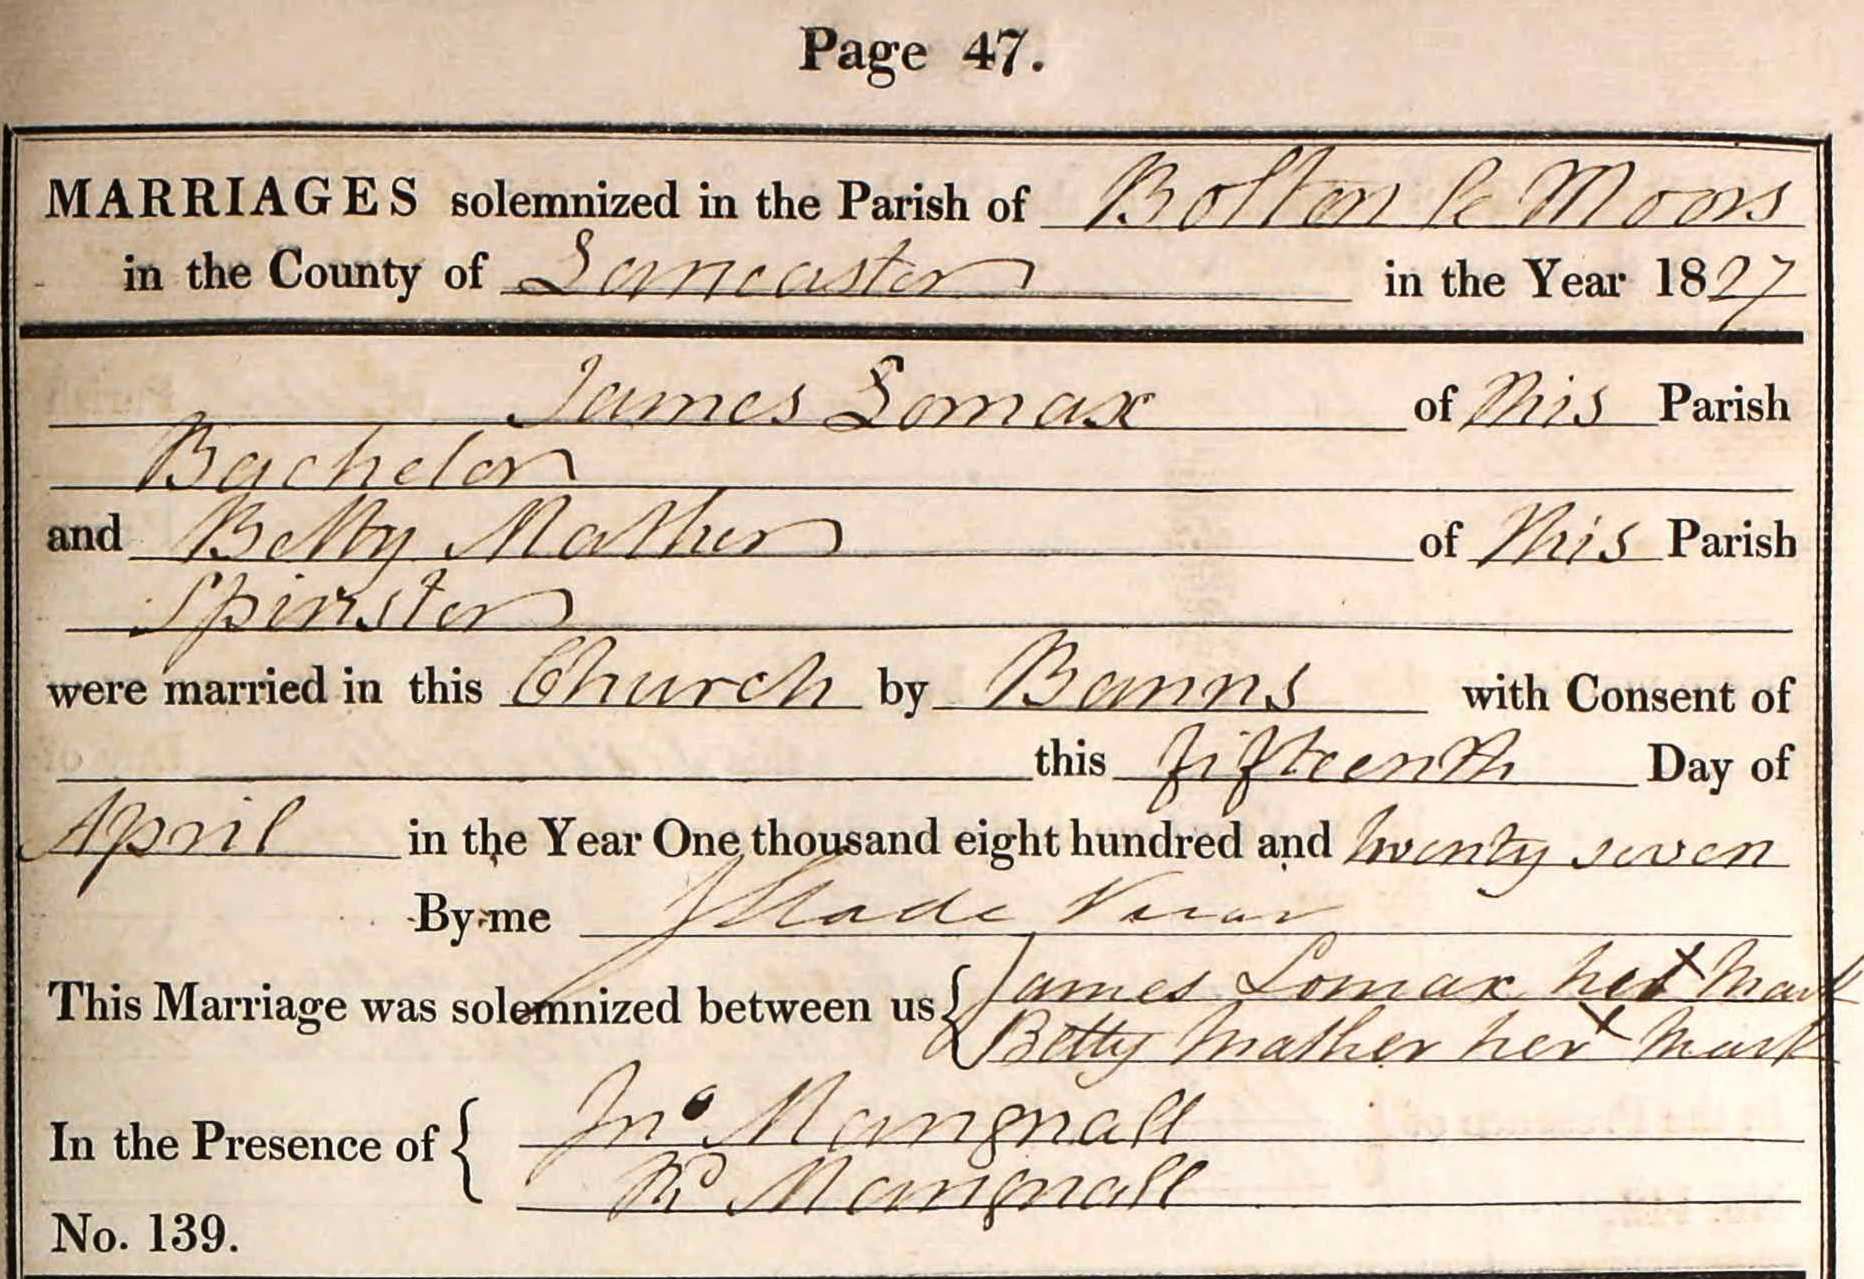 Page 47.
MARRIAGES solemnized in the Parish of Bolton le Moors
in the County of Lancaster in the Year 1827
James Lomax of this Parish
Bachelor
and Betty Mather of this Parish
Spinster
were married in this Church by Banns with Consent of
this fifteenth Day of
April in the Year One thousand eight hundred and twenty seven
By me J Slade Vicar
This Marriage was solemnized between us { James Lomax his x Mark
Betty Mather her x Mark
In the Presence of { Jno Mangnall
Rd Mangnall
No. 139.